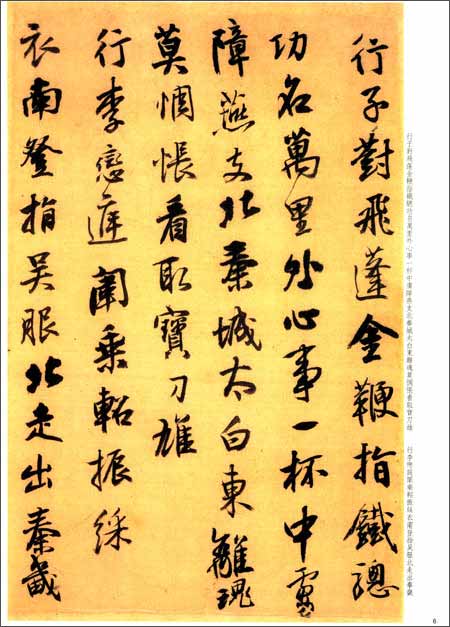 行子對飛蓬金鞭指鐵驄
功名萬里外心事一杯中虜
障燕支北秦城太白東離魂
莫惆悵看取寶刀雄
行李戀庭闈乘軺振綵
衣南登指吴服北走出秦畿
行子對飛蓬金鞭指鐵驄功名萬里外心事一杯中虜障燕支北秦城太白東離魂莫惆悵看取寶刀雄
行李戀庭闈乘軺振綵衣南登指吴服北走出秦畿
6